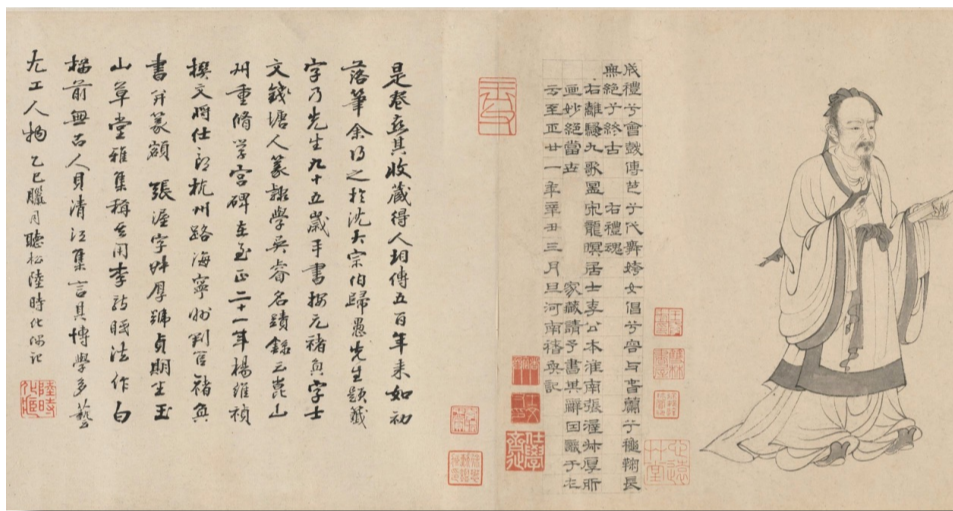 成禮兮會鼓傳芭兮代舞姱女倡兮容與春蘭兮秋鞠長
無絕兮終古 右禮魂
右離騷九歌圖宋龍眠居士李公本淮南張渥叔厚所
妙絕當世 家藏請予書其辭因識于左
云至正廿一年辛丑三月旦河南褚奐記
是卷其收藏得人相傳五百年來如初
落筆余得之於沈大宗伯歸愚先生題籤
字乃先生九十五歲手書按元褚奐字士
文錢塘人篆隸學吳睿名蹟錄云崑山
州重脩學宮碑在至正二十一年楊維禎
撰文將仕郎杭州路海寧州判官褚奐
書并篆額 張渥字叔厚號貞期生玉
山草堂雅集稱善用李龍眠法作白
描前無古人貝清江集言其博學多藝
尤工人物乙巳臘月聽松陸時化偶記